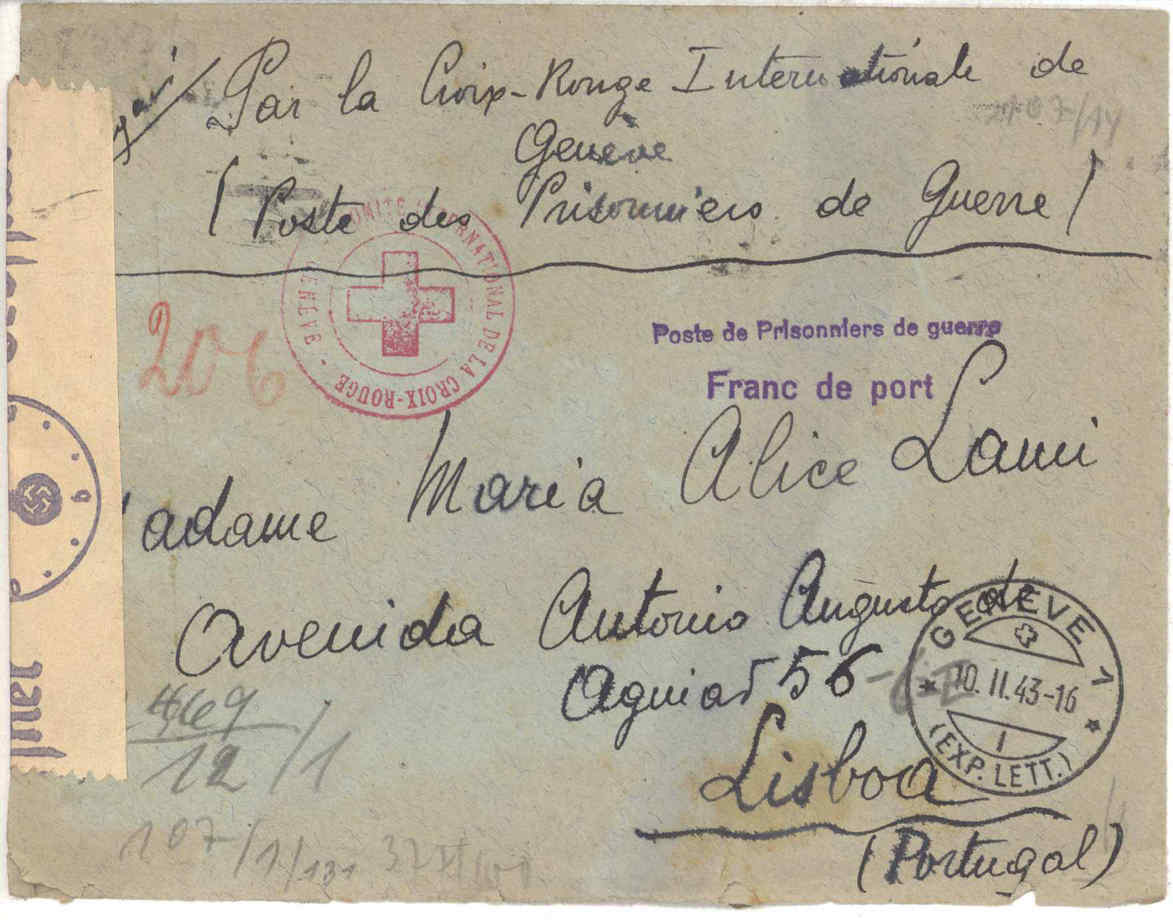 Par la Croix-Rouge Internationale de
Genève
(Poste des Prisonniers de Guerre)
COMITÉ INTERNATIONAL DE LA CROIX-ROUGE - GENÈVE -
206
Poste de Prisonniers de guerre
Franc de port
Madame Maria Alice Lami
Avenida Antonio Augusto de
Aguiar 56
Lisboa
(Portugal)
GENÈVE 1
10. II. 43-16
(EXP. LETT.)
469
12/1
107/1/131